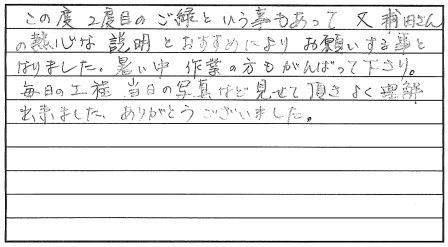 この度2度目のご縁という事もあって 又 羽田さん
の熱心な説明とおすすめにより お願いする事と
なりました。暑い中 作業の方もがんばって下さり。
毎日の工程 当日の写真など見せて頂きよく理解
出来ました。ありがとうございました。